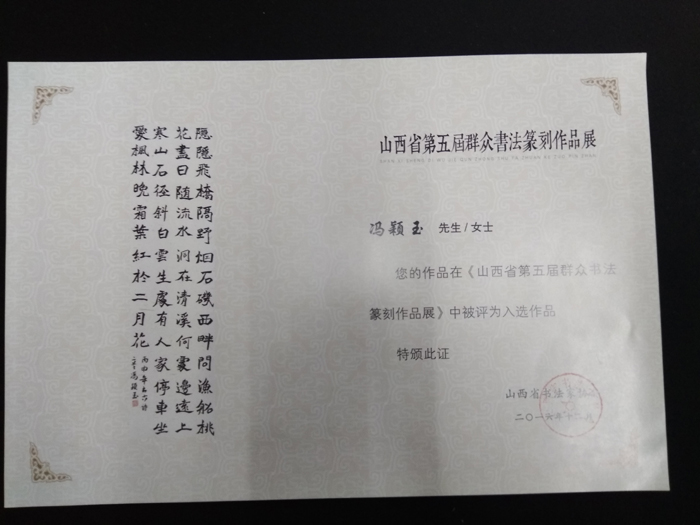 隐隐飛橋隔野烟石磯西畔問漁船桃
花盡日随流水洞在清溪何處邊遠上
寒山石徑斜白雲生處有人家停車坐
愛楓林晚霜葉红於二月花
山西省第五届群众書法篆刻作品展
冯颖玉 先生/女士
您的作品在《山西省第五届群众书法
篆刻作品展》中被评为入选作品
特颁此证
山西省书法家协会
二〇一六年十二月